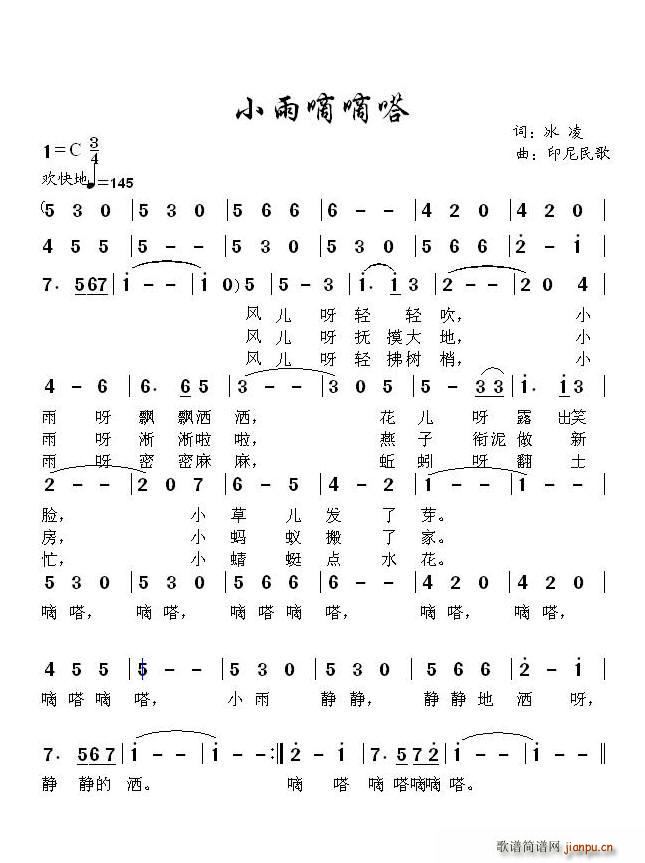 小雨嘀嘀嗒
词：冰 凌
1=C 3/4
曲：印尼民歌
欢快地 ♩=145
(5 3 0 | 5 3 0 | 5 6 6 | 6 - - | 4 2 0 | 4 2 0 |
4 5 5 | 5 - - | 5 3 0 | 5 3 0 | 5 6 6 | 2̇ - 1̇ |
7. 567 | 1̇ - - | 1̇ 0) 5 | 5 - 3 | 1̇. 1̇ 3 | 2 - - | 2 0 4 |
风 儿 呀 轻 轻 吹， 小
风 儿 呀 抚 摸 大 地， 小
风 儿 呀 轻 拂 树 梢， 小
4 - 6 | 6. 6 5 | 3 - - | 3 0 5 | 5 - 3 3 | 1̇. 1̇ 3 |
雨 呀 飘 飘 洒 洒， 花 儿 呀 露 出 笑
雨 呀 淅 淅 啦 啦， 燕 子 衔 泥 做 新
雨 呀 密 密 麻 麻， 蚯 蚓 呀 翻 土
2 - - | 2 0 7 | 6 - 5 | 4 - 2 | 1 - - | 1 - - |
脸， 小 草 儿 发 了 芽。
房， 小 蚂 蚁 搬 了 家。
忙， 小 蜻 蜓 点 水 花。
5 3 0 | 5 3 0 | 5 6 6 | 6 - - | 4 2 0 | 4 2 0 |
嘀 嗒， 嘀 嗒， 嘀 嗒 嘀 嗒， 嘀 嗒， 嘀 嗒，
4 5 5 | 5 - - | 5 3 0 | 5 3 0 | 5 6 6 | 2̇ - 1̇ |
嘀 嗒 嘀 嗒， 小 雨 静 静， 静 静 地 洒 呀，
7. 5 6 7 | 1̇ - - | 1̇ - - :‖ 2̇ - 1̇ | 7. 5 7 2̇ | 1̇ - - | 1̇ - - ‖
静 静 的 洒。 嘀 嗒 嘀 嗒嘀嘀 嗒。
歌谱简谱网
jianpu.cn